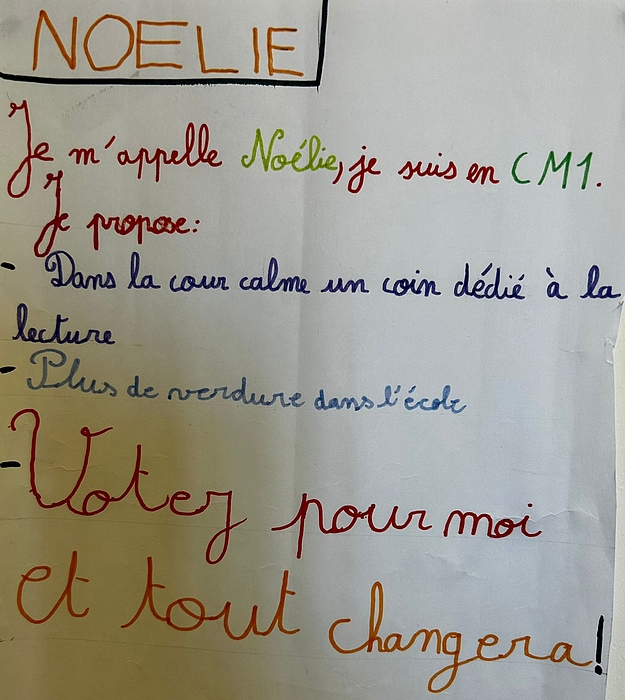 NOELIE
Je m'appelle Noélie, je suis en CM1.
Je propose:
- Dans la cour calme un coin dédié à la
lecture
- Plus de verdure dans l'école
- Votez pour moi
et tout changera!